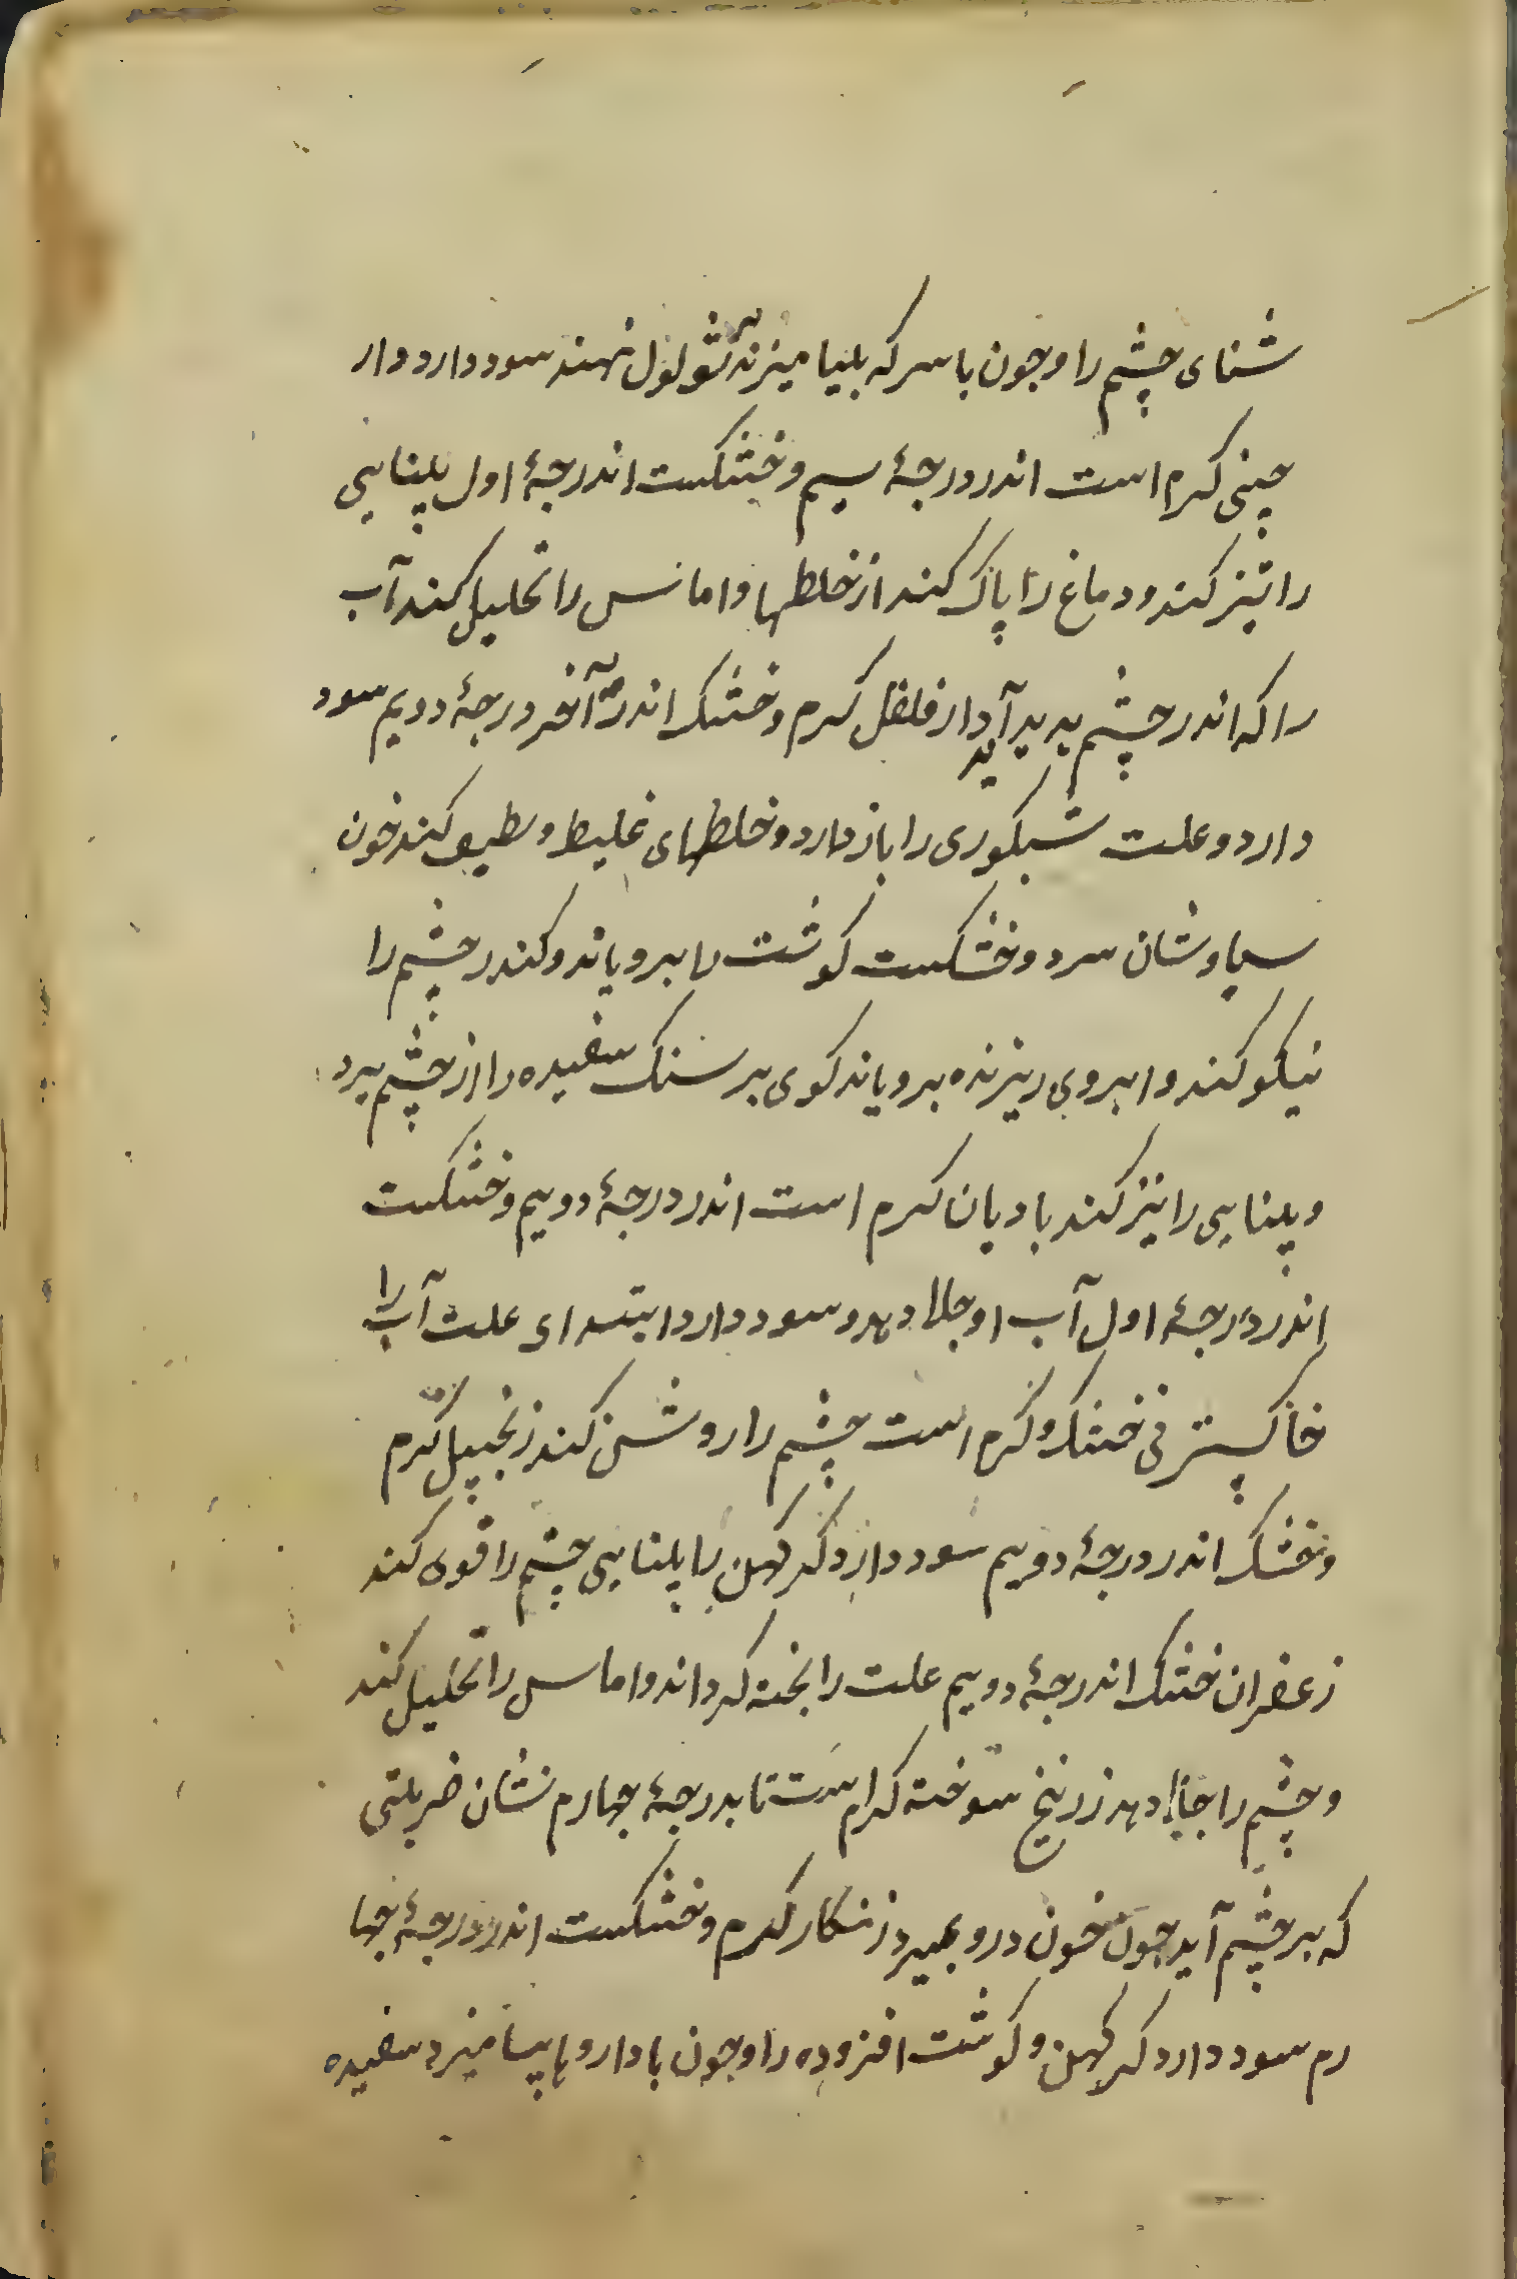 شنای چشم را و جون با سرکه بلیا میزند بر تولول نهند سود دارد دار
چینی کرم است اندر درجهٔ سیم و خشکست اندرجهٔ اول پلنایی
را تیز کند و دماغ را پاک کند از خلطها و امانس را تحلیل کند آب
را که اندر چشم پدید آید دار فلفل کرم و خشک اندر آخر درجهٔ دویم سود
دارد و علت شبکوری را باز دارد و خلطهای غلیظ و لطیف کند خون
سیاوشان سرد و خشکست کوشت را برویاند و کندر چشم را
نیکو کند و ابروی ریزنده برویاند کوی بر سنک سفیده را از چشم ببرد
و پلنایی را تیز کند بادیان کرم است اندر درجهٔ دویم و خشکست
اندر درجهٔ اول آب او جلا دهد و سود دارد ابتدای علت آب را
خاکستر نی خشک و کرم است چشم را روشن کند زنجبیل کرم
و خشک اندر درجهٔ دویم سود دارد کر کهن را پلنایی چشم را قوی کند
زعفران خشک اندرجهٔ دویم علت را پخته کرداند و اماس را تحلیل کند
و چشم را جلا دهد زرنیخ سوخته کرم است تا بدرجهٔ جهارم نشان ضربتی
که بر چشم آید جون خون درو بمیرد زنکار کرم و خشکست اندر درجهٔ جها
رم سود دارد کر کهن و کوشت افزوده را و جون با داروها بیامیزد سفیده